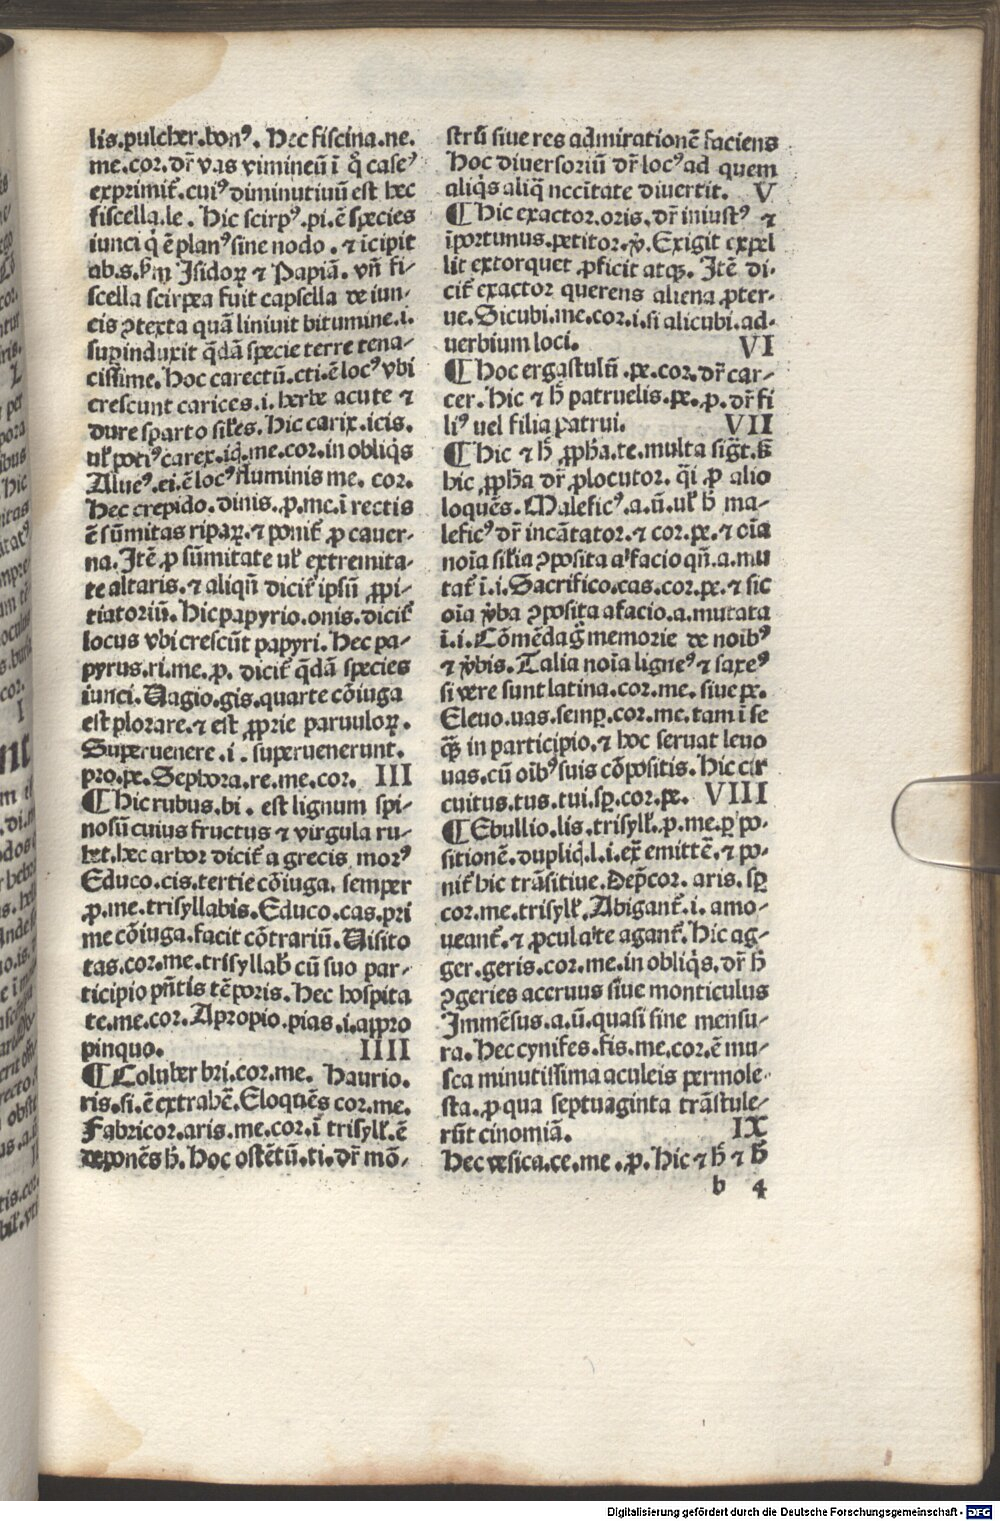 lis.pulcher.bonꝰ. Hec fiscina.ne.
me.cor.dr̄ vas vimineū ī q̊ caseꝰ
exprimit᷑.cuiꝰ diminutiuū est hec
fiscella.le. Hic scirpꝰ.pi.ē species
iunci q̇ ē planꝰ sine nodo. ⁊ īcipit
ab.s. Isidoꝝ ⁊ Papiā. vn̄ fi-
scella scirpea fuit capsella de iun-
cis ꝯtexta quā liniuit bitumine.i.
suꝑinduxit q̄dā specie terre tena-
cissime. Hoc carectū.cti.ē locꝰ vbi
crescunt carices.i. herbe acute ⁊
dure sparto siłes. Hic carix.icis.
uł potiꝰ carex.iq̄.me.cor.in obliq̇s
Alueꝰ.ei.ē locꝰ fluminis me. cor.
Hec crepido.dinis.p.me.ī rectis
ē sūmitas ripaꝝ.⁊ ponit᷑ ꝓ cauer-
na. Itē ꝓ sūmitate uł extremita-
te altaris.⁊ aliqn̄ dicit᷑ ipsū ꝓpi-
tiatoriū. Hic papyrio.onis.dicit᷑
locus vbi crescūt papyri. Hec pa-
pyrus.ri.me.p. dicit᷑ q̄dā species
iunci. Uagio.gis.quarte cōiuga
est plorare.⁊ est ꝓprie paruuloꝝ.
Superuenere.i. superuenerunt.
pro.pe. Sephora.re.me.cor. III
¶ Hic rubus.bi. est lignum spi-
nosū cuius fructus ⁊ virgula ru-
bet.hec arbor dicit᷑ a grecis morꝰ
Educo.cis.tertie cōiuga. semper
p.me.trisyllabis. Educo.cas.pri
me cōiuga.facit cōtrariū. Uisito
tas.cor.me.trisyllab cū suo par-
ticipio pn̄tis tēporis. Hec hospita
te.me.cor. Apropio.pias.i.appro
pinquo. IIII
¶ Coluber bri.cor.me. Haurio.
ris.si.ē extrahē. Eloquēs cor.me.
Fabricor.aris.me.cor.ī trisyłł.ē
deponēs h̄. Hoc ostētū.ti.dr̄ mō-
strū siue res admirationē faciens
Hoc diuersoriū dr̄ locꝰ ad quem
aliq̇s aliq̄ nccitate diuertit. V
¶ Hic exactor.oris.dr̄ iniustꝰ ⁊
īportunus.petitor. Exigit expel
lit extorquet ꝓficit atqꝫ. Itē di-
cit᷑ exactor querens aliena ꝓter-
ue. Sicubi.me.cor.i.si alicubi.ad-
uerbium loci. VI
¶ Hoc ergastulū.pe.cor.dr̄ car-
cer. Hic ⁊ h̄ patruelis.pe.p.dr̄ fi
liꝰ uel filia patrui. VII
¶ Hic ⁊ h̄ ꝓph̄a.te.multa
hic ꝓph̄a dr̄ ꝓlocutor. q̄i ꝓ alio
loquēs. Maleficꝰ.a.ū.uł h̄ ma-
leficꝰ dr̄ incātator.⁊ cor.pe.⁊ oīa
noīa siłia ꝯposita a facio qn̄.a.mu
tat᷑ ī.i. Sacrifico.cas.cor.pe.⁊ sic
oīa v̄ba ꝯposita a facio.a.mutata
ī.i. Cōmēda memorie de noibꝰ
⁊ v̄bis. Talia noīa ligneꝰ ⁊ saxeꝰ
si vere sunt latina.cor.me. siue pe.
Eleuo.uas.semꝑ.cor.me.tam ī se
qꝫ in participio.⁊ hoc seruat leuo
uas.cū oībꝰ suis cōpositis. Hic cir
cuitus.tus.tui.sꝑ.cor.pe. VIII
¶ Ebullio.lis.trisyłł.p.me.ꝑ po-
sitionē.dupliq̄.l.i.eꝝ emittē.⁊ po-
nit᷑ hic trāsitiue. Dep̄cor.aris.sꝑ
cor.me.trisyłł. Abigant᷑.i. amo-
ueant᷑.⁊ ꝓcul a te agant᷑. Hic ag-
ger.geris.cor.me.in obliq̇s.dr̄ h̄
ꝯgeries aceruus siue monticulus
Immēsus.a.ū.quasi sine mensu-
ra. Hec cynifes.fis.me.cor.ē mu-
sca minutissima aculeis permole-
sta.ꝓ qua septuaginta trāstule-
rūt cinomiā. IX
Hec vesica.ce.me.p. Hic ⁊ h̄ ⁊ h̄
b 4
Digitalisierung gefördert durch die Deutsche Forschungsgemeinschaft - DFG